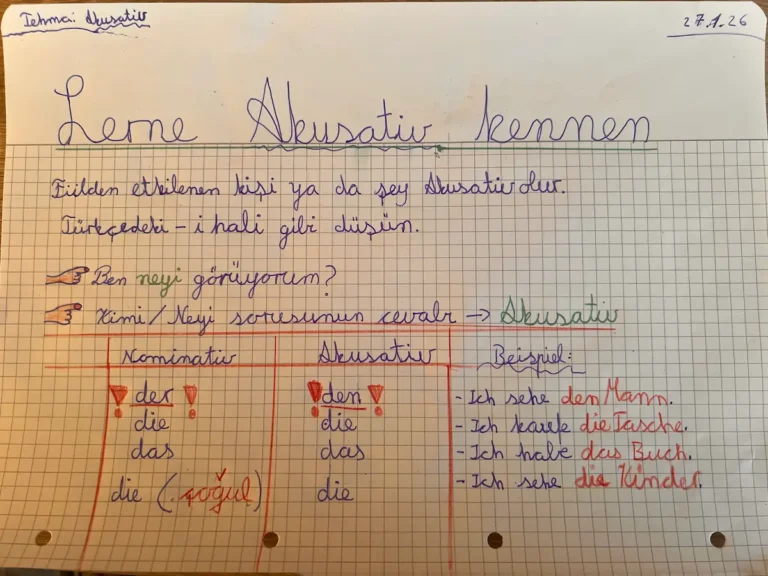 Tehma: Akusativ
27.1.26
Lerne Akusativ kennen
Fiilden etkilenen kişi ya da şey Akusativ olur.
Türkçedeki -i hali gibi düşün.
Ben neyi görüyorum?
Kimi/Neyi sorusunun cevabı → Akusativ
Nominativ Akusativ Beispiel:
! der ! ! den ! - Ich sehe den Mann.
die die - Ich kaufe die Tasche.
das das - Ich habe das Buch.
die (çoğul) die - Ich sehe die Kinder.